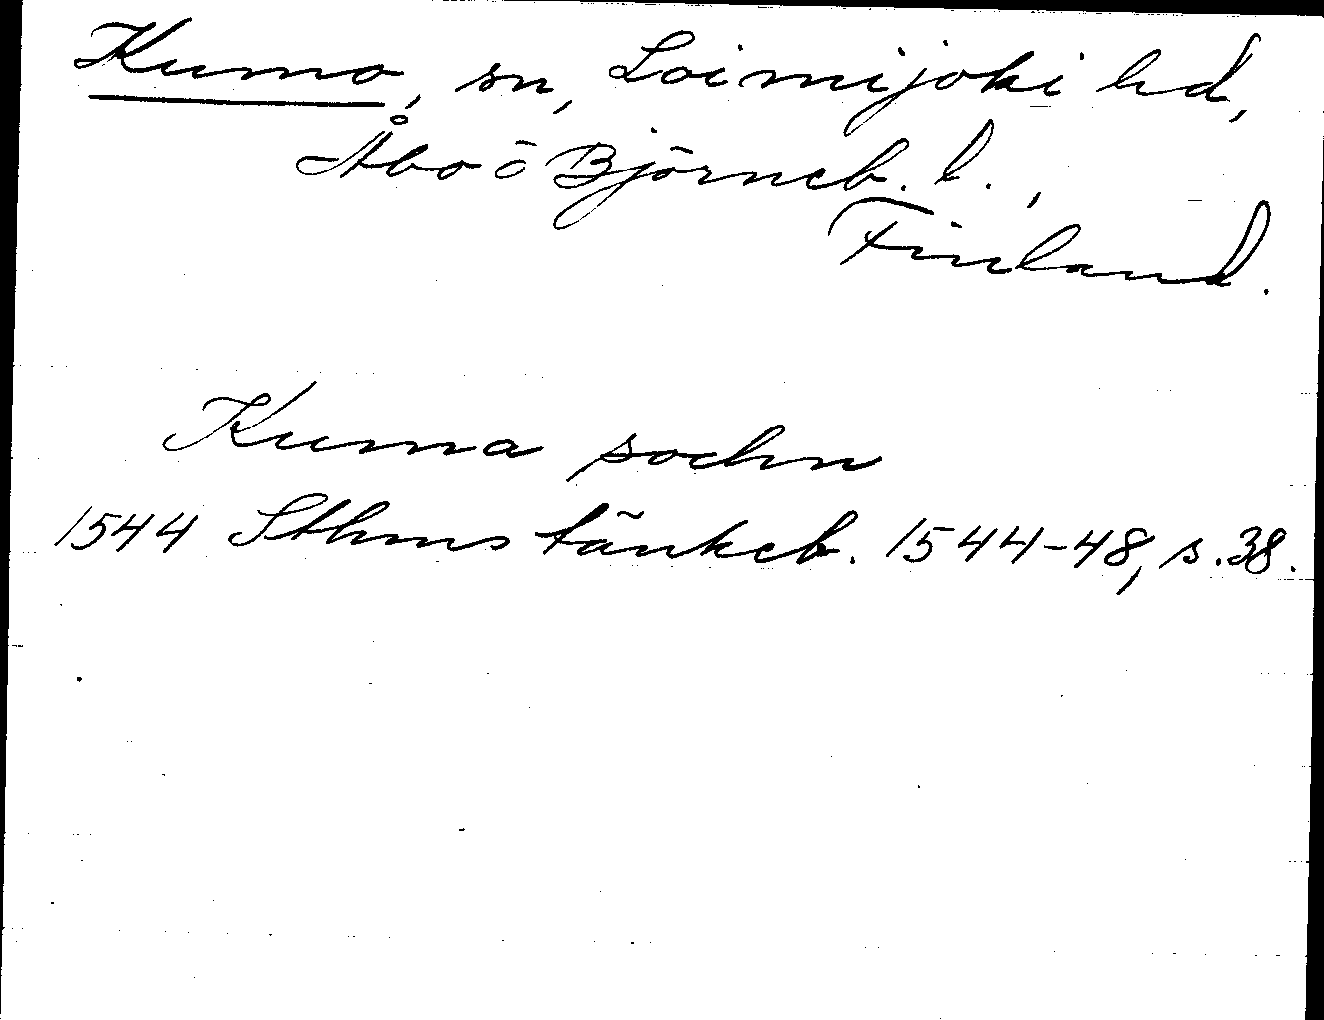 Kumo, sn, Loimijoki hd,
Åbo o Björneb. l.,
Finland.
Kuma sochn
1544 Sthms tänkeb. 1544-48, s. 38.